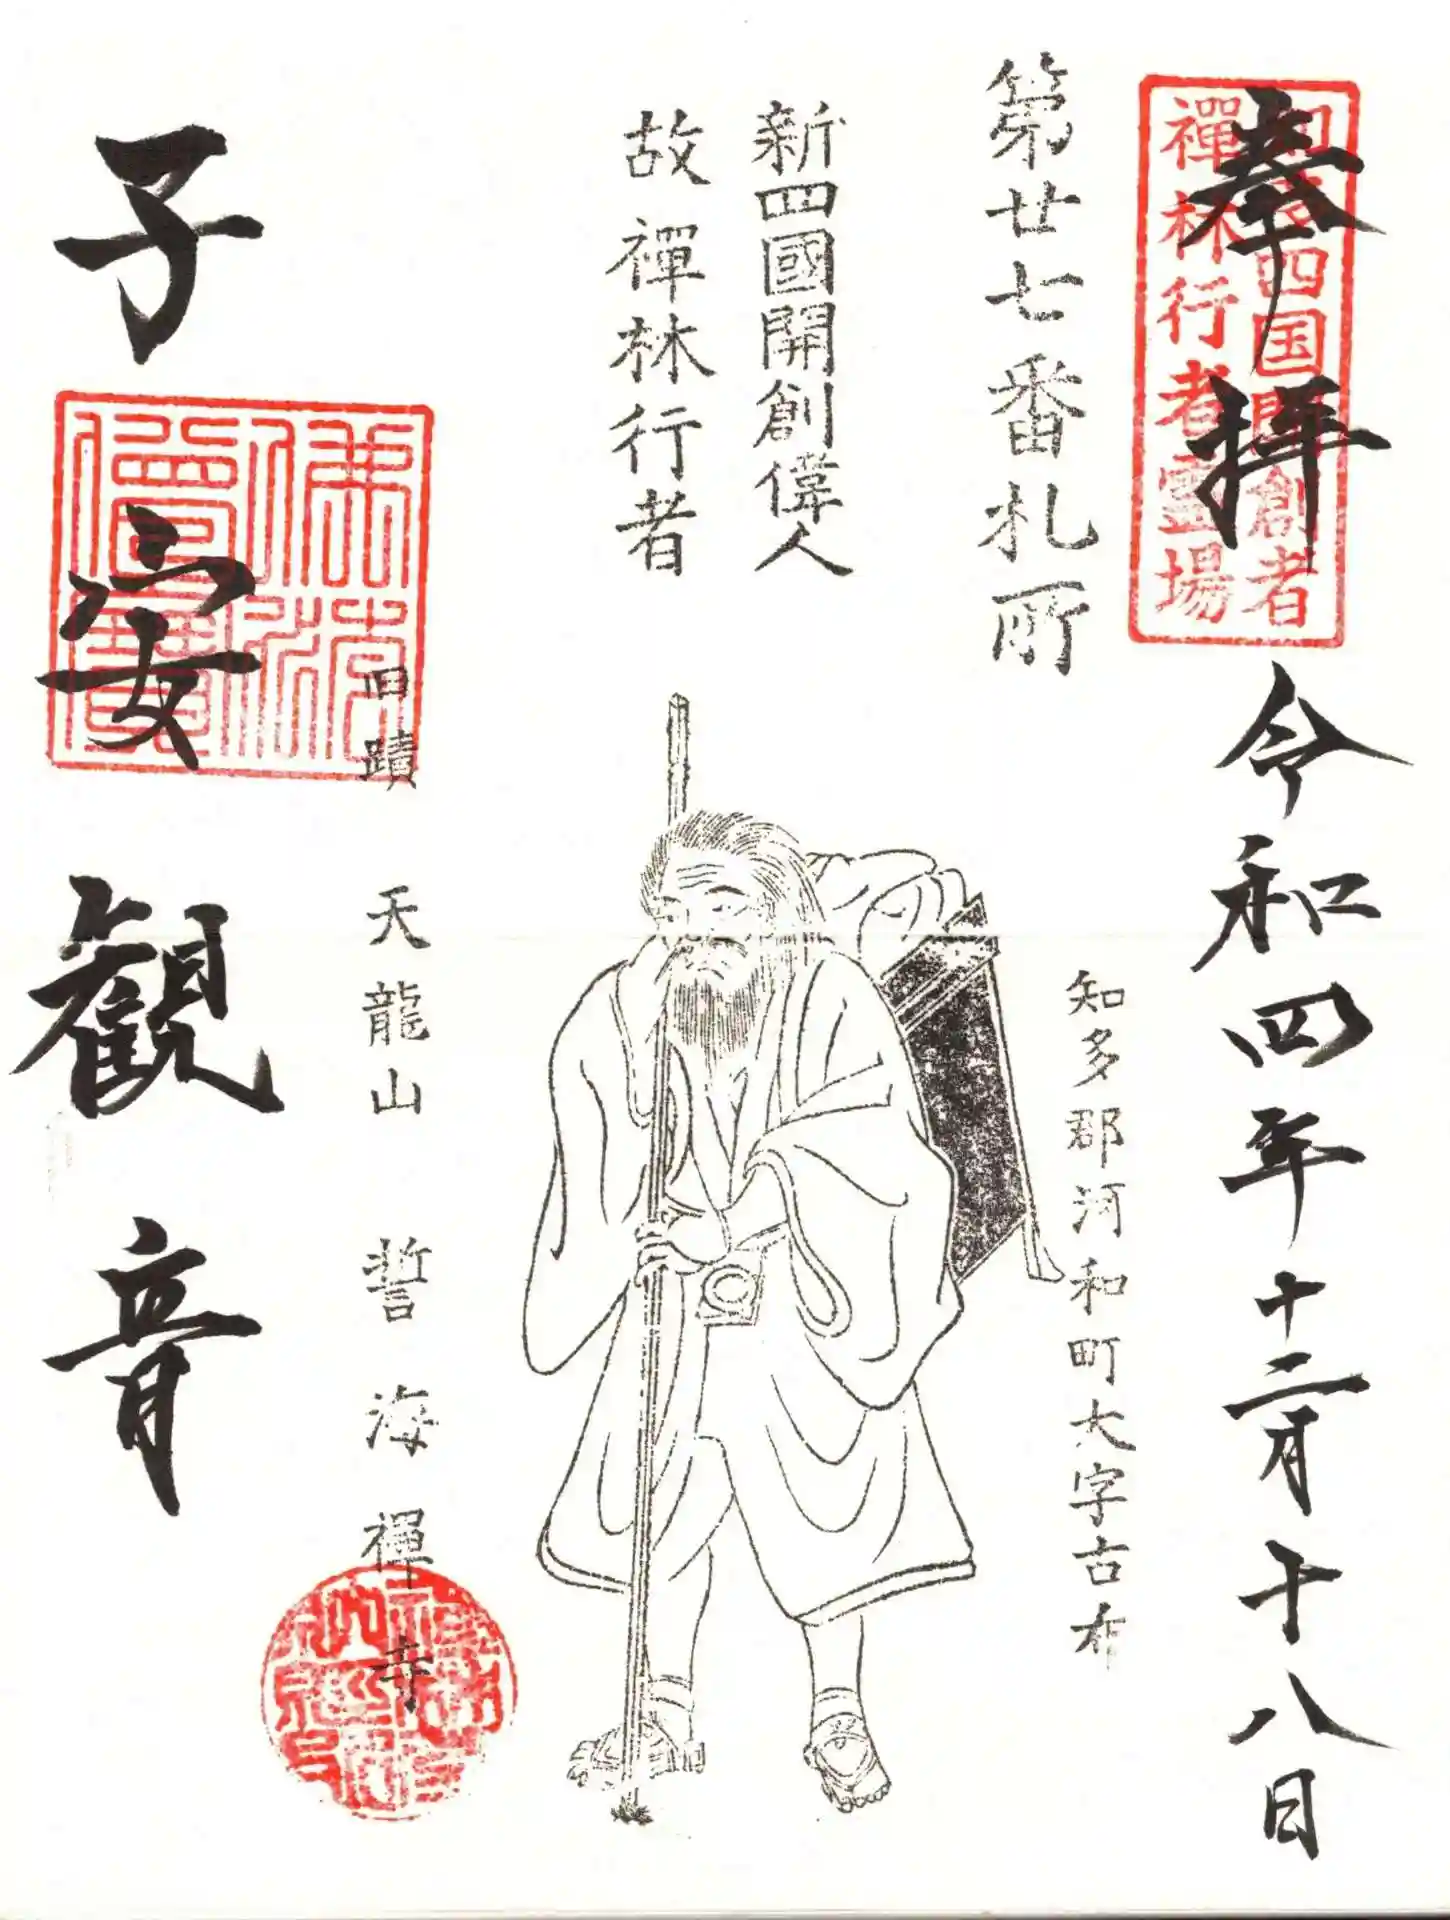 奉拝
四国開創者
禅林行者霊場
令和四年十二月十八日
第廿七番札所
知多郡河和町大字古布
新四國開創偉人
故禪林行者
旧蹟 天龍山 誓海禪寺
子安觀音